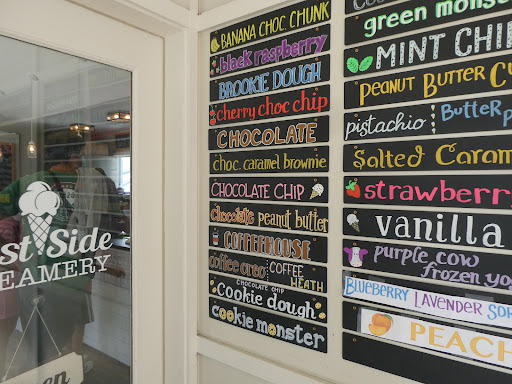 BANANA CHOC. CHUNK
black raspberry
BROOKIE DOUGH
cherry choc chip
CHOCOLATE
choc. caramel brownie
CHOCOLATE CHIP
chocolate peanut butter
COFFEEHOUSE
coffee oreo COFFEE HEATH
CHOCOLATE CHIP
cookie dough
cookie monster
green
MINT CHIP
PEANUT BUTTER
pistachio BUTTER
Salted Caram
strawberr
vanilla
purple cow
frozen yo
BLUEBERRY LAVENDER SOR
PEACH
st Side
EAMERY